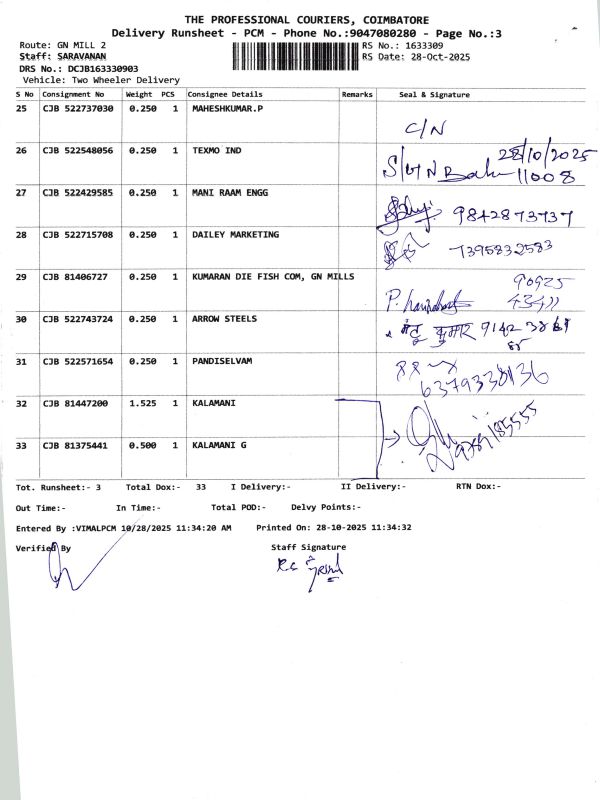 THE PROFESSIONAL COURIERS, COIMBATORE
Delivery Runsheet - PCM - Phone No.:9047080280 - Page No.:3
Route: GN MILL 2 RS No.: 1633309
Staff: SARAVANAN RS Date: 28-Oct-2025
DRS No.: DCJB163330903
Vehicle: Two Wheeler Delivery
S No Consignment No Weight PCS Consignee Details Remarks Seal & Signature
25 CJB 522737030 0.250 1 MAHESHKUMAR.P
C/N
26 CJB 522548056 0.250 1 TEXMO IND
28/10/2025
11008
27 CJB 522429585 0.250 1 MANI RAAM ENGG
9842873737
28 CJB 522715708 0.250 1 DAILEY MARKETING
7395832583
29 CJB 81406727 0.250 1 KUMARAN DIE FISH COM, GN MILLS
90925
43411
30 CJB 522743724 0.250 1 ARROW STEELS
कुमार 9142
31 CJB 522571654 0.250 1 PANDISELVAM
6379338136
32 CJB 81447200 1.525 1 KALAMANI
33 CJB 81375441 0.500 1 KALAMANI G
Tot. Runsheet:- 3 Total Dox:- 33 I Delivery:- II Delivery:- RTN Dox:-
Out Time:- In Time:- Total POD:- Delvy Points:-
Entered By :VIMALPCM 10/28/2025 11:34:20 AM Printed On: 28-10-2025 11:34:32
Verified By Staff Signature